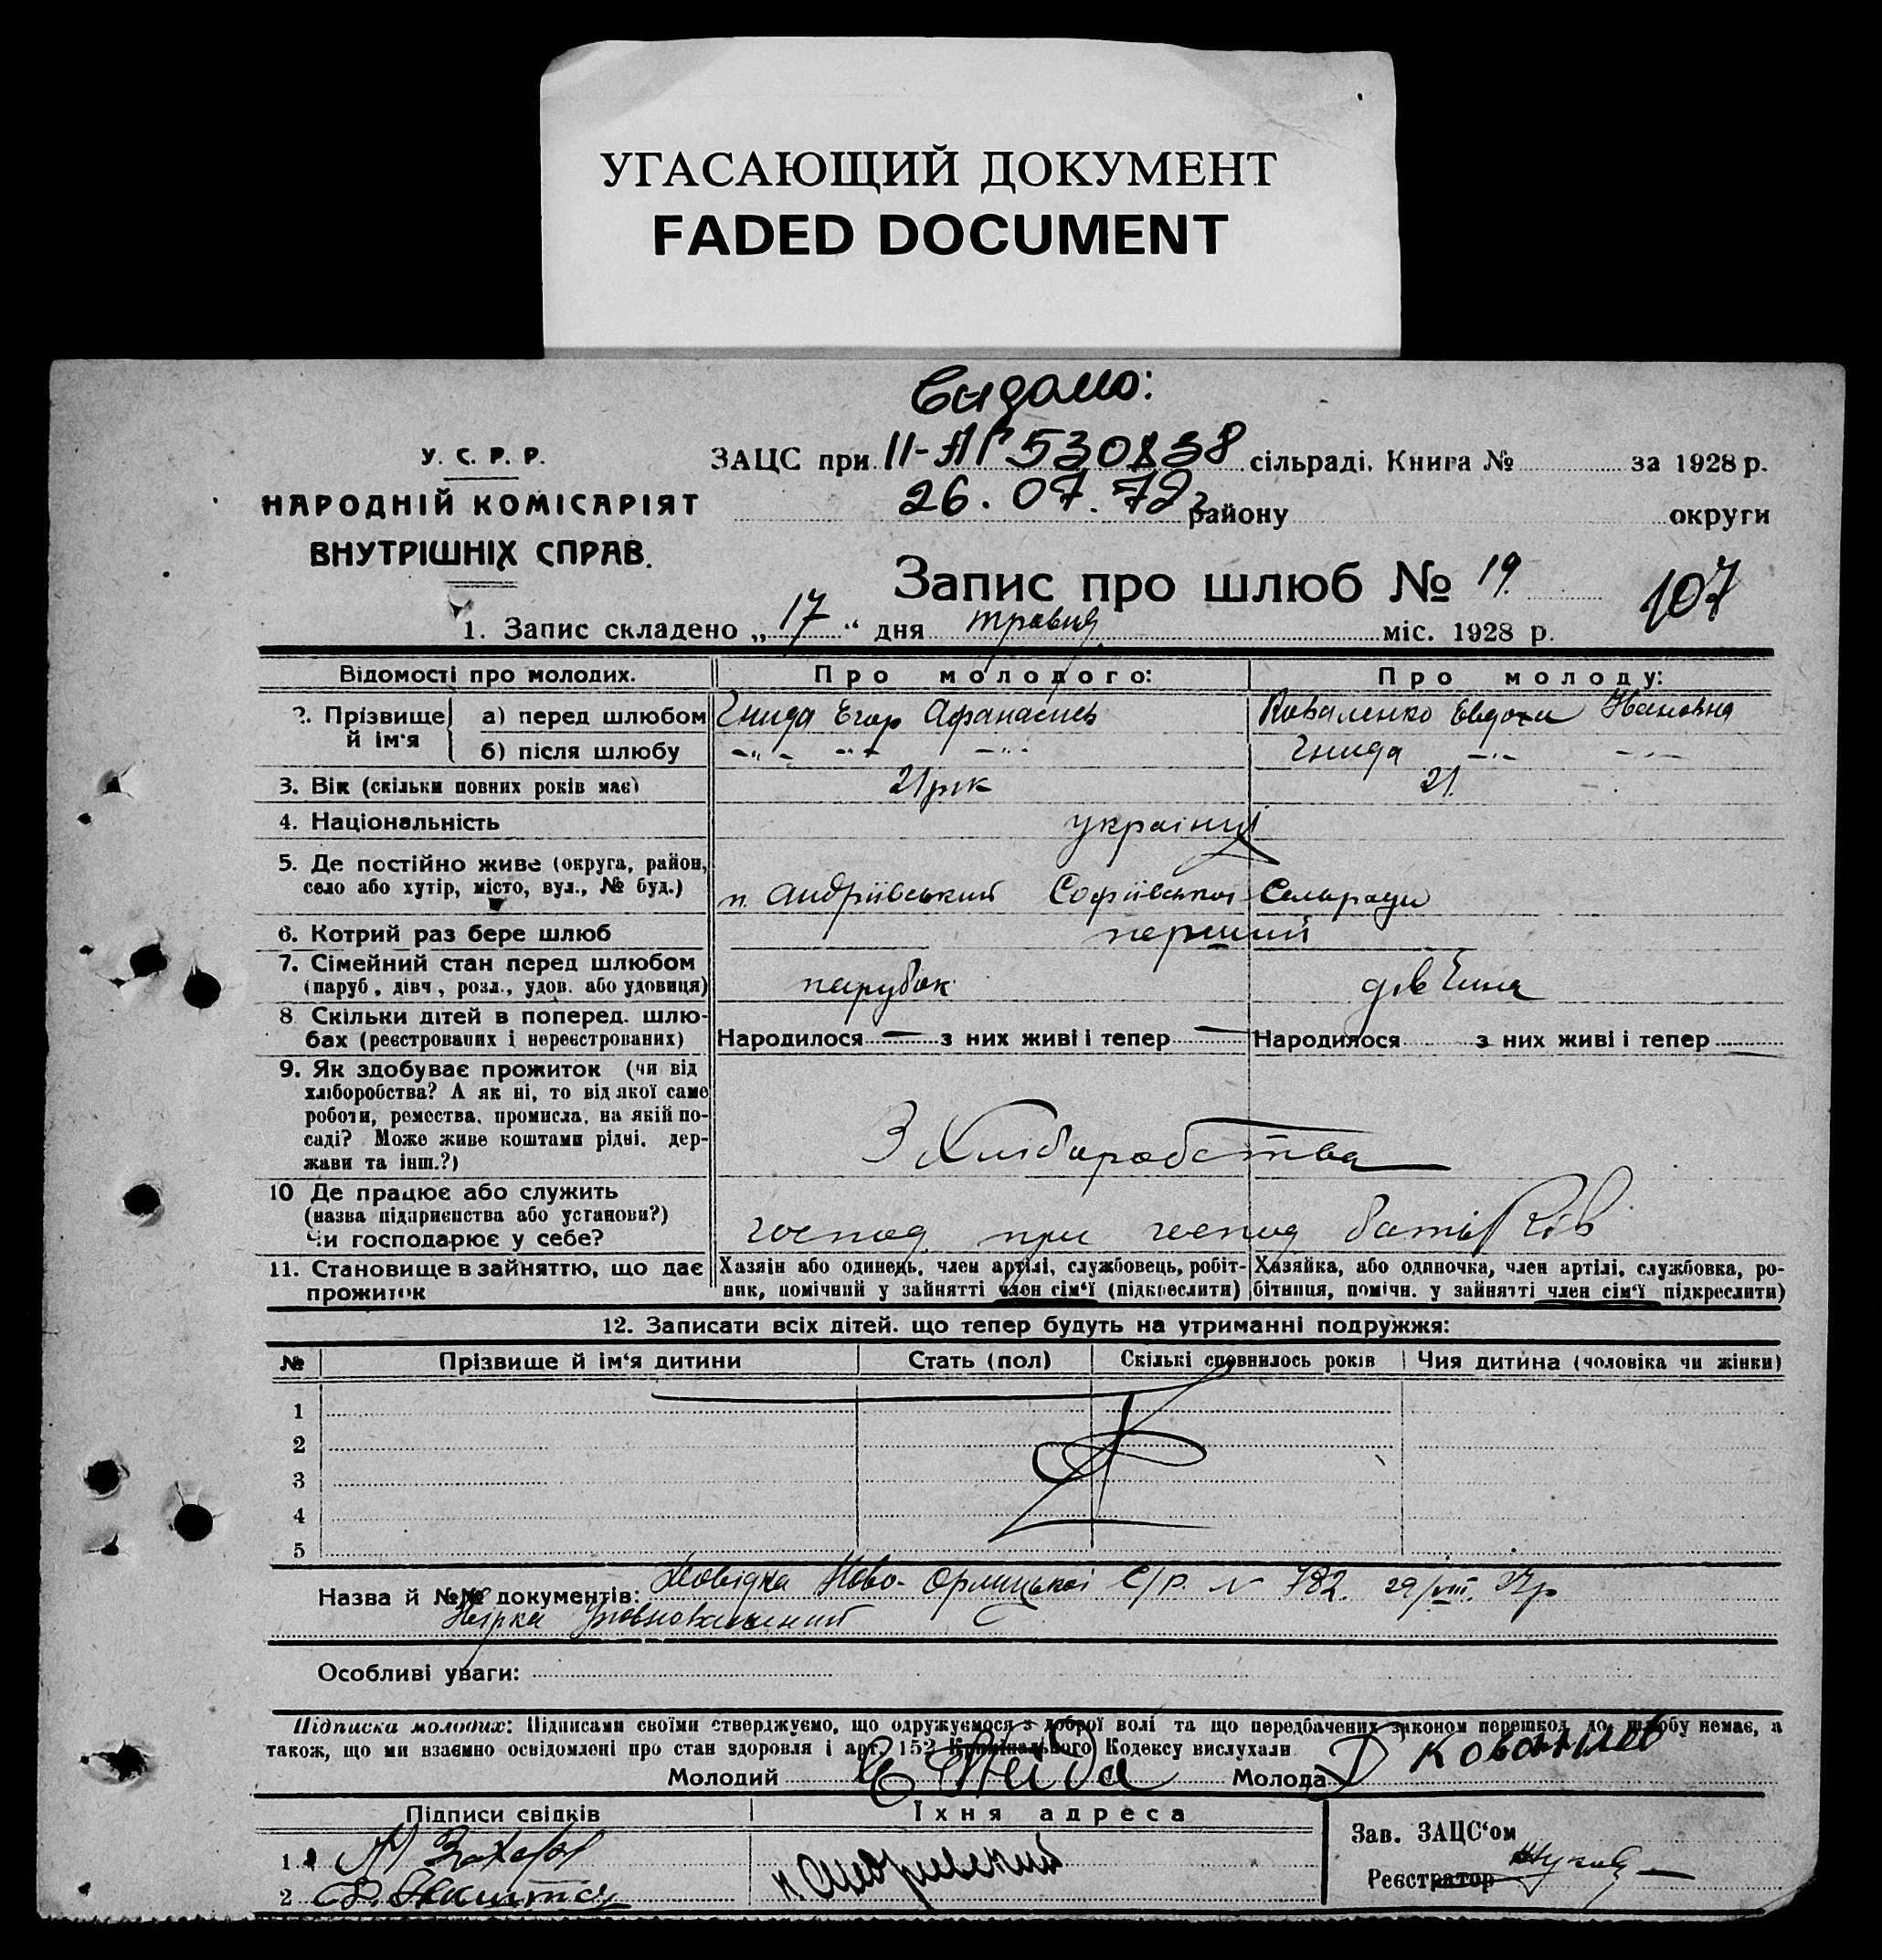 УГАСАЮЩИЙ ДОКУМЕНТ
FADED DOCUMENT
Видано:
У. С. Р. Р.
НАРОДНІЙ КОМІСАРІЯТ
ВНУТРІШНІХ СПРАВ.
ЗАЦС при II-АП 530838 сільраді. Книга № за 1928 р.
26.07.72 району округи
Запис про шлюб № 19. 107
1. Запис складено „ 17 “ дня травня міс. 1928 р.
Відомості про молодих. Про молодого: Про молоду:
2. Прізвище й ім'я а) перед шлюбом Гнида Егор Афанасиев Коваленко Евдохи Ивановна
б) після шлюбу -„- -„- -„- Гнида -„- -„-
3. Вік (скільки повних років має) 21 рік 21.
4. Національність українці
5. Де постійно живе (округа, район,
село або хутір, місто, вул., № буд.) п. Андріївський Софіївської Сельради
6. Котрий раз бере шлюб перший
7. Сімейний стан перед шлюбом
(паруб., дівч., розл., удов. або удовиця) парубок дівчина
8 Скільки дітей в поперед. шлю-
бах (реєстрованих і нереєстрованих) Народилося — з них живі і тепер — Народилося з них живі і тепер
9. Як здобуває прожиток (чи від
хліборобства? А як ні, то від якої саме
роботи, ремества, промисла, на якій по-
саді? Може живе коштами рідні, дер-
жави та інш.?) З Хліборобства
10 Де працює або служить
(назва підприєиства або установи?)
Чи господарює у себе? господ. при господ батьків
11. Становище в зайняттю, що дає
прожиток
Хазяїн або одинець, член артілі, службовець, робіт-
ник, помічний у зайнятті член сім'ї (підкреслити)
Хазяйка, або одиночка, член артілі, службовка, ро-
бітниця, помічн. у зайнятті член сім'ї підкреслити)
12. Записати всіх дітей. що тепер будуть на утриманні подружжя:
№ Прізвище й ім'я дитини Стать (пол) Скількі сповнилось років Чия дитина (чоловіка чи жінки)
1
2
3
4
5
Назва й №№ документів: Довідка Ново-Орлицької С/р. N 782. 29/VIII. 27р
Особливі уваги:
Підписка молодих: Підписами своїми стверджуємо, що одружуємося з доброї волі та що передбачених законом перешкод до шлюбу немає, а
також, що ми взаємно освідомлені про стан здоровля і арт. 152 Кримінального Кодексу вислухали
Молодий Е Гнида Молода
Підписи свідків Їхня адреса
1
2
п. Андриевский
Зав. ЗАЦС'ом
Реєстратор